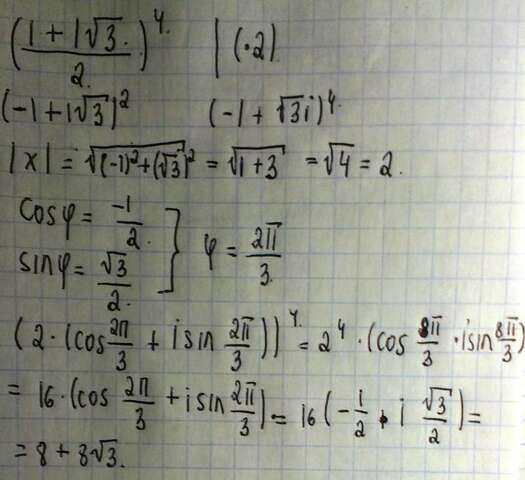 ((1 + i√3)/2)^4 | (·2)
(-1 + i√3)^2 (-1 + √3i)^4
|x| = √((-1)^2 + (√3)^2) = √(1 + 3) = √4 = 2.
cosφ = -1/2
sinφ = √3/2 } φ = 2π/3.
(2·(cos 2π/3 + i sin 2π/3))^4 = 2^4 · (cos 8π/3 · i sin 8π/3)
= 16·(cos 2π/3 + i sin 2π/3) = 16(-1/2 + i √3/2) =
= 8 + 8√3.